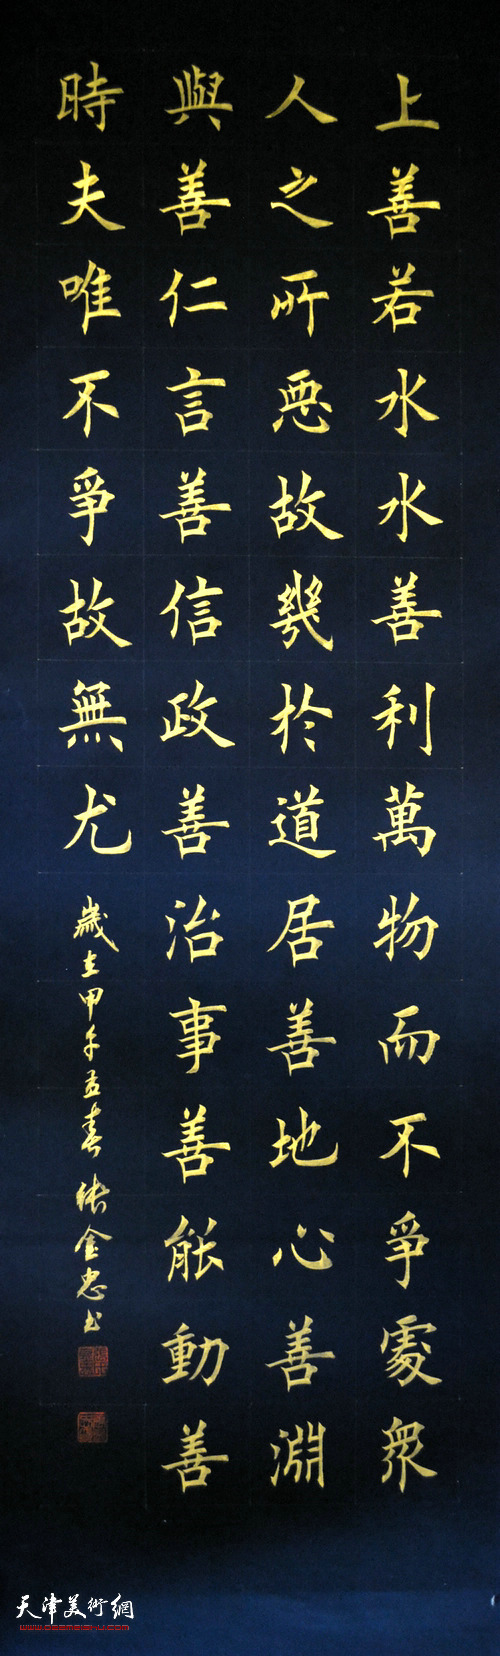 上善若水水善利萬物而不爭處衆
人之所惡故幾於道居善地心善淵
與善仁言善信政善治事善能動善
時夫唯不爭故無尤
歲在甲午孟春張金忠書
天津美術網